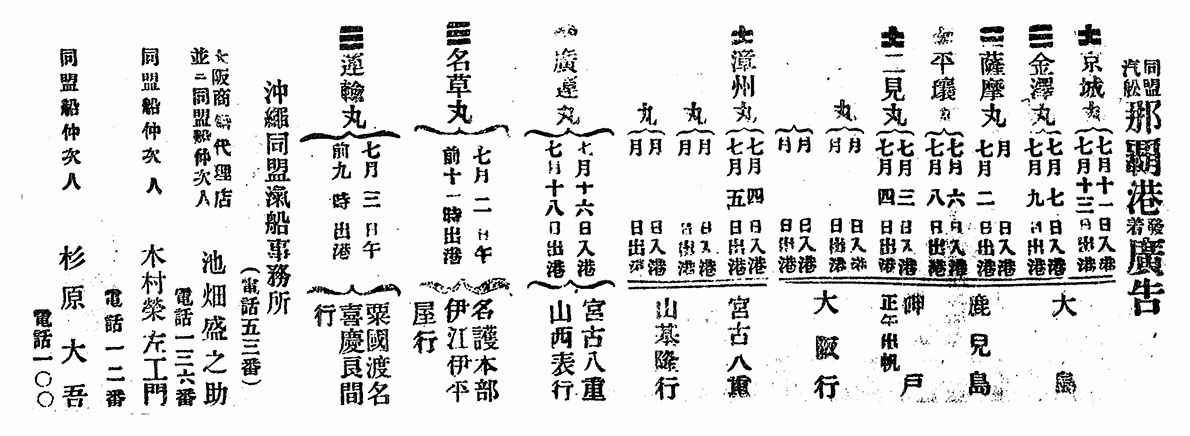 同盟汽舩那覇港發着廣告
京城丸 七月十一日入港 七月十三日出港
金澤丸 七月七日入港 七月九日出港
薩摩丸 月日入港 七月二日出港
平壤丸 七月六日入港 七月八日出港
二見丸 七月三日入港 七月四日出港
丸 月日入港 月日出港
大島
鹿児島
神戸
正午出帆
大阪行
漳州丸 七月四日入港 七月五日出港
丸 月日入港 月日出港
丸 月日入港 月日出港
宮古八重
山基隆行
廣運丸 七月十六日入港 七月十八日出港
宮古八重
山西表行
名草丸 七月二日午
前十一時出港
名護本部
伊江伊平
屋行
運輸丸 七月三日午
前九時出港
粟國渡名
喜慶良間
行
沖繩同盟滊船事務所
(電話五三番)
大阪商船代理店
並ニ同盟船仲次人 池畑盛之助
電話一三六番
同盟船仲次人 木村榮左工門
電話一二番
同盟船仲次人 杉原大吾
電話一〇〇